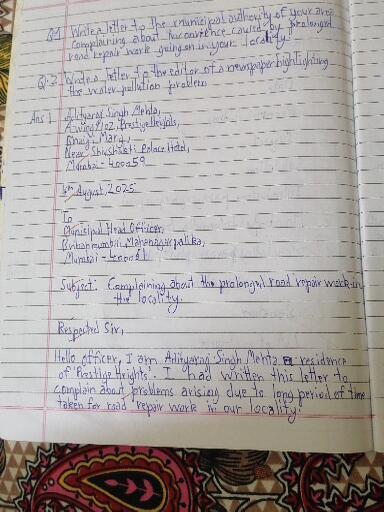 Q.1 Write a letter to the municipal authority of your area
complaining about inconvenience caused by prolonged
road repair work going on in your locality.
Q.2 Write a letter to the editor of a newspaper highlighting
the water pollution problem
Ans 1 Adityaraj Singh Mehta,
A wing 902, Prestige Heights,
Bhatji Marg,
Near Palace Hotel,
Mumbai - 400059
5th August, 2025
To
Municipal Head Officer,
Brihanmumbai Mahanagarpalika,
Mumbai -
Subject: Complaining about the prolonged road repair work in
the locality.
Respected Sir,
Hello officer, I am Adityaraj Singh Mehta residence
of 'Prestige Heights'. I had written this letter to
complain about problems arising due to long period of time
taken for road repair work in our locality.